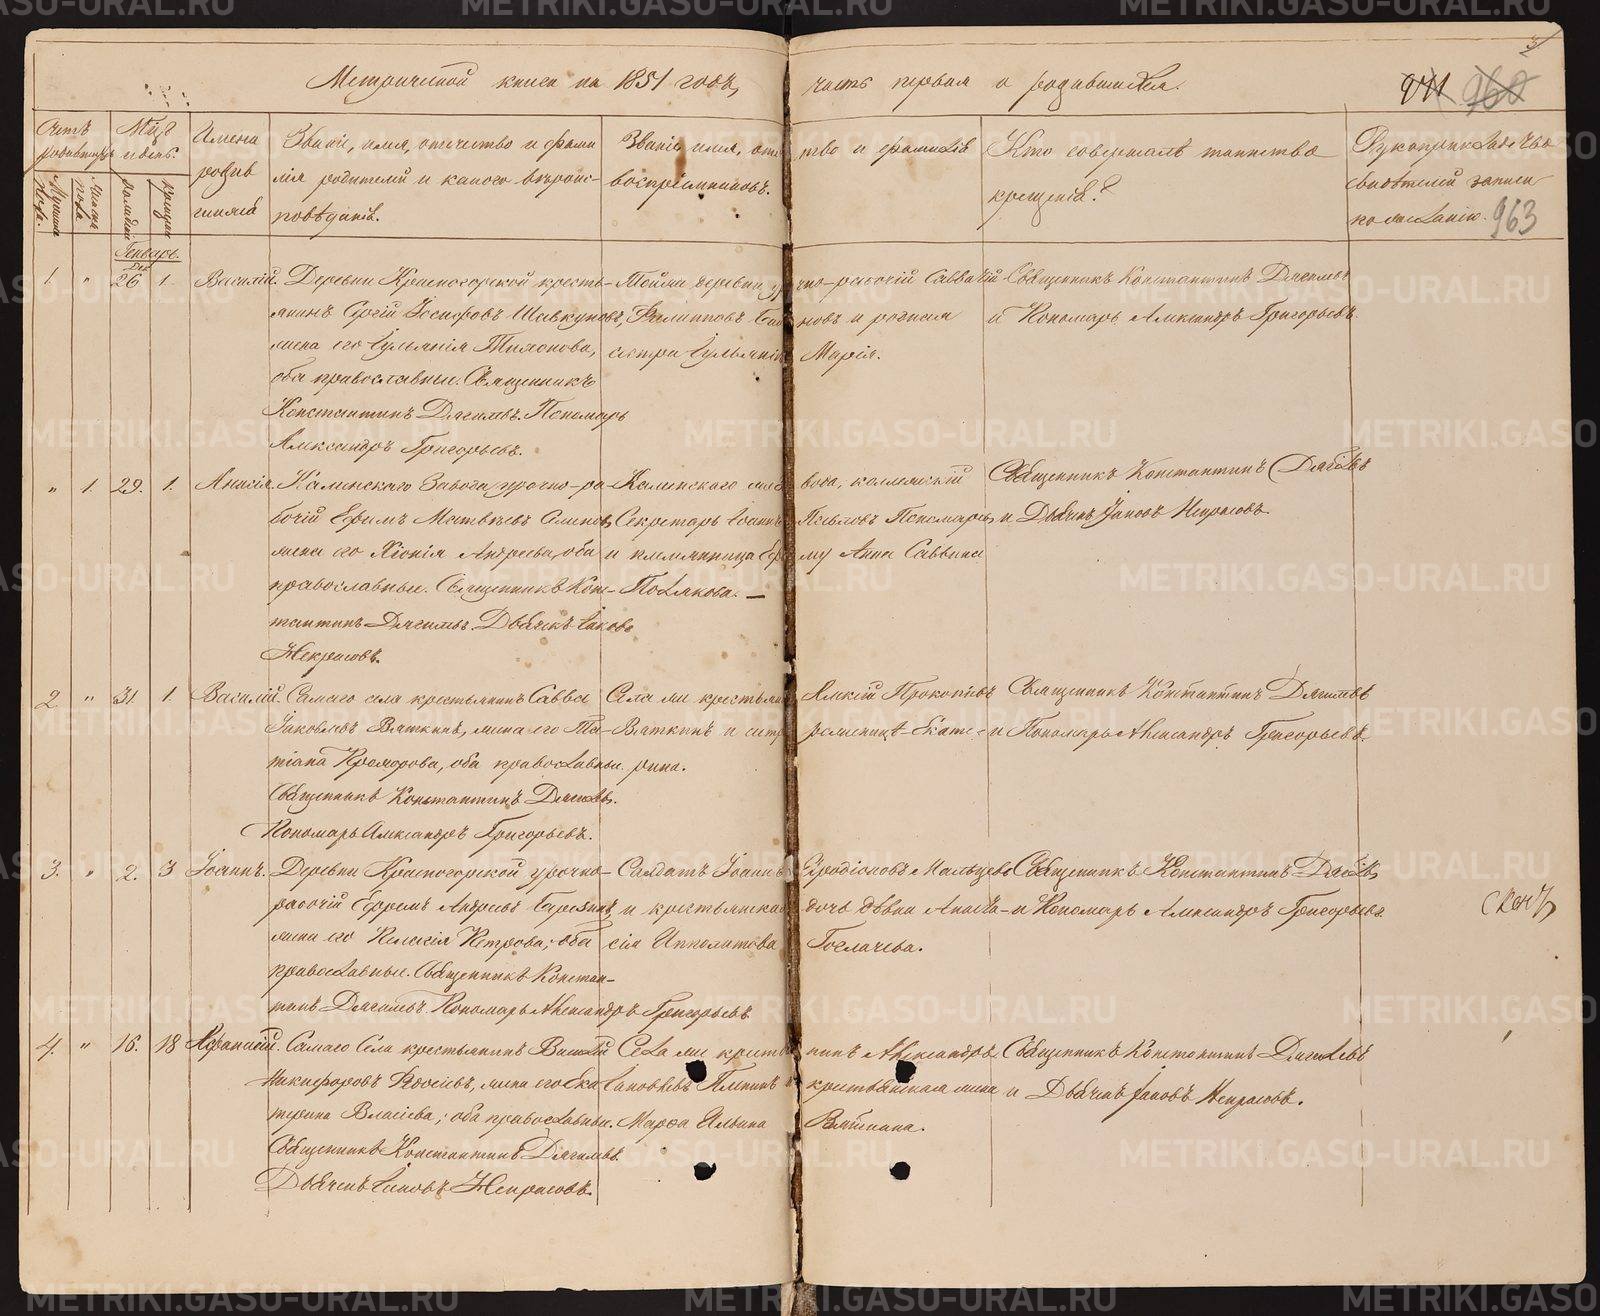 Метрической книги на 1851 годъ, часть первая о родившихся.
963
Счетъ родившихся
Мужеска пола.
Женска пола
Мѣц. и день.
рожденія
крещенія
Имена родившихся
Званіе, имя, отчество и фамилія родителей и какого вѣроисповѣданія.
Званіе имя, отчество и фамилія воспріемниковъ.
Кто совершалъ таинство крещенія?
Рукоприкладство свидѣтелей записи по желанію.
Генварь.
1. " 26 1. Василій.
Деревни Красногорской кресть-
янинъ Сергій Іосифовъ Шавкуновъ,
жена его Іульянія Тихонова,
оба православные. Священникъ
Константинъ Дягилевъ. Пономарь
Александръ Григорьевъ.
Тойже деревни урочно-рабочій Савватій
Филипповъ
новъ и родная
сестра Іульянія Марія.
Священникъ Константинъ Дягилевъ
и Пономарь Александръ Григорьевъ.
" 1. 29. 1. Анисія.
Каменскаго Завода урочно-ра-
бочій Ефимъ Матвѣевъ
жена его Хіонія Андреева, оба
православные. Священникъ Кон-
стантинъ Дягилевъ. Дьячекъ Іаковъ
Некрасовъ.
Каменскаго завода, коллежскій
Секретарь Іоаннъ Павловъ Пономаревъ
и племянница Ефиму Анна Саввина
Полякова.
Священникъ Константинъ Дягилевъ
и Дьячекъ Іаковъ Некрасовъ.
2 " 31. 1. Василій.
Самаго села крестьянинъ Савва
Іаковлевъ Вяткинъ, жена его Та-
тіана Прохорова, оба православные.
Священникъ Константинъ Дягилевъ.
Пономарь Александръ Григорьевъ.
Села же крестьянинъ Алексій Прокопьевъ
Вяткинъ и сестра роженицѣ Екате-
рина.
Священникъ Константинъ Дягилевъ
и Пономарь Александръ Григорьевъ.
3. " 2. 3 Іоаннъ.
Деревни Красногорской урочно-
рабочій Ефремъ Андреевъ
жена его Пелагія Петрова; оба
православные. Священникъ Констан-
тинъ Дягилевъ. Пономарь Александръ Григорьевъ.
Салдатъ Іоаннъ Иродіоновъ Мальцевъ
и крестьянская дочь дѣвка Анаста-
сія Ипполитова
Священникъ Константинъ Дягилевъ
и Пономарь Александръ Григорьевъ.
4. " 16. 18 Афанасій.
Самаго Села крестьянинъ Василій
Никифоровъ жена его Ека-
терина Власіева; оба православные.
Священникъ Константинъ Дягилевъ.
Дьячекъ Іаковъ Некрасовъ.
Села же крестьянинъ Александръ
Іаковлевъ и крестьянская жена
Марфа Ильина Вяткина.
Священникъ Константинъ Дягилевъ
и Дьячекъ Іаковъ Некрасовъ.
METRIKI.GASO-URAL.RU